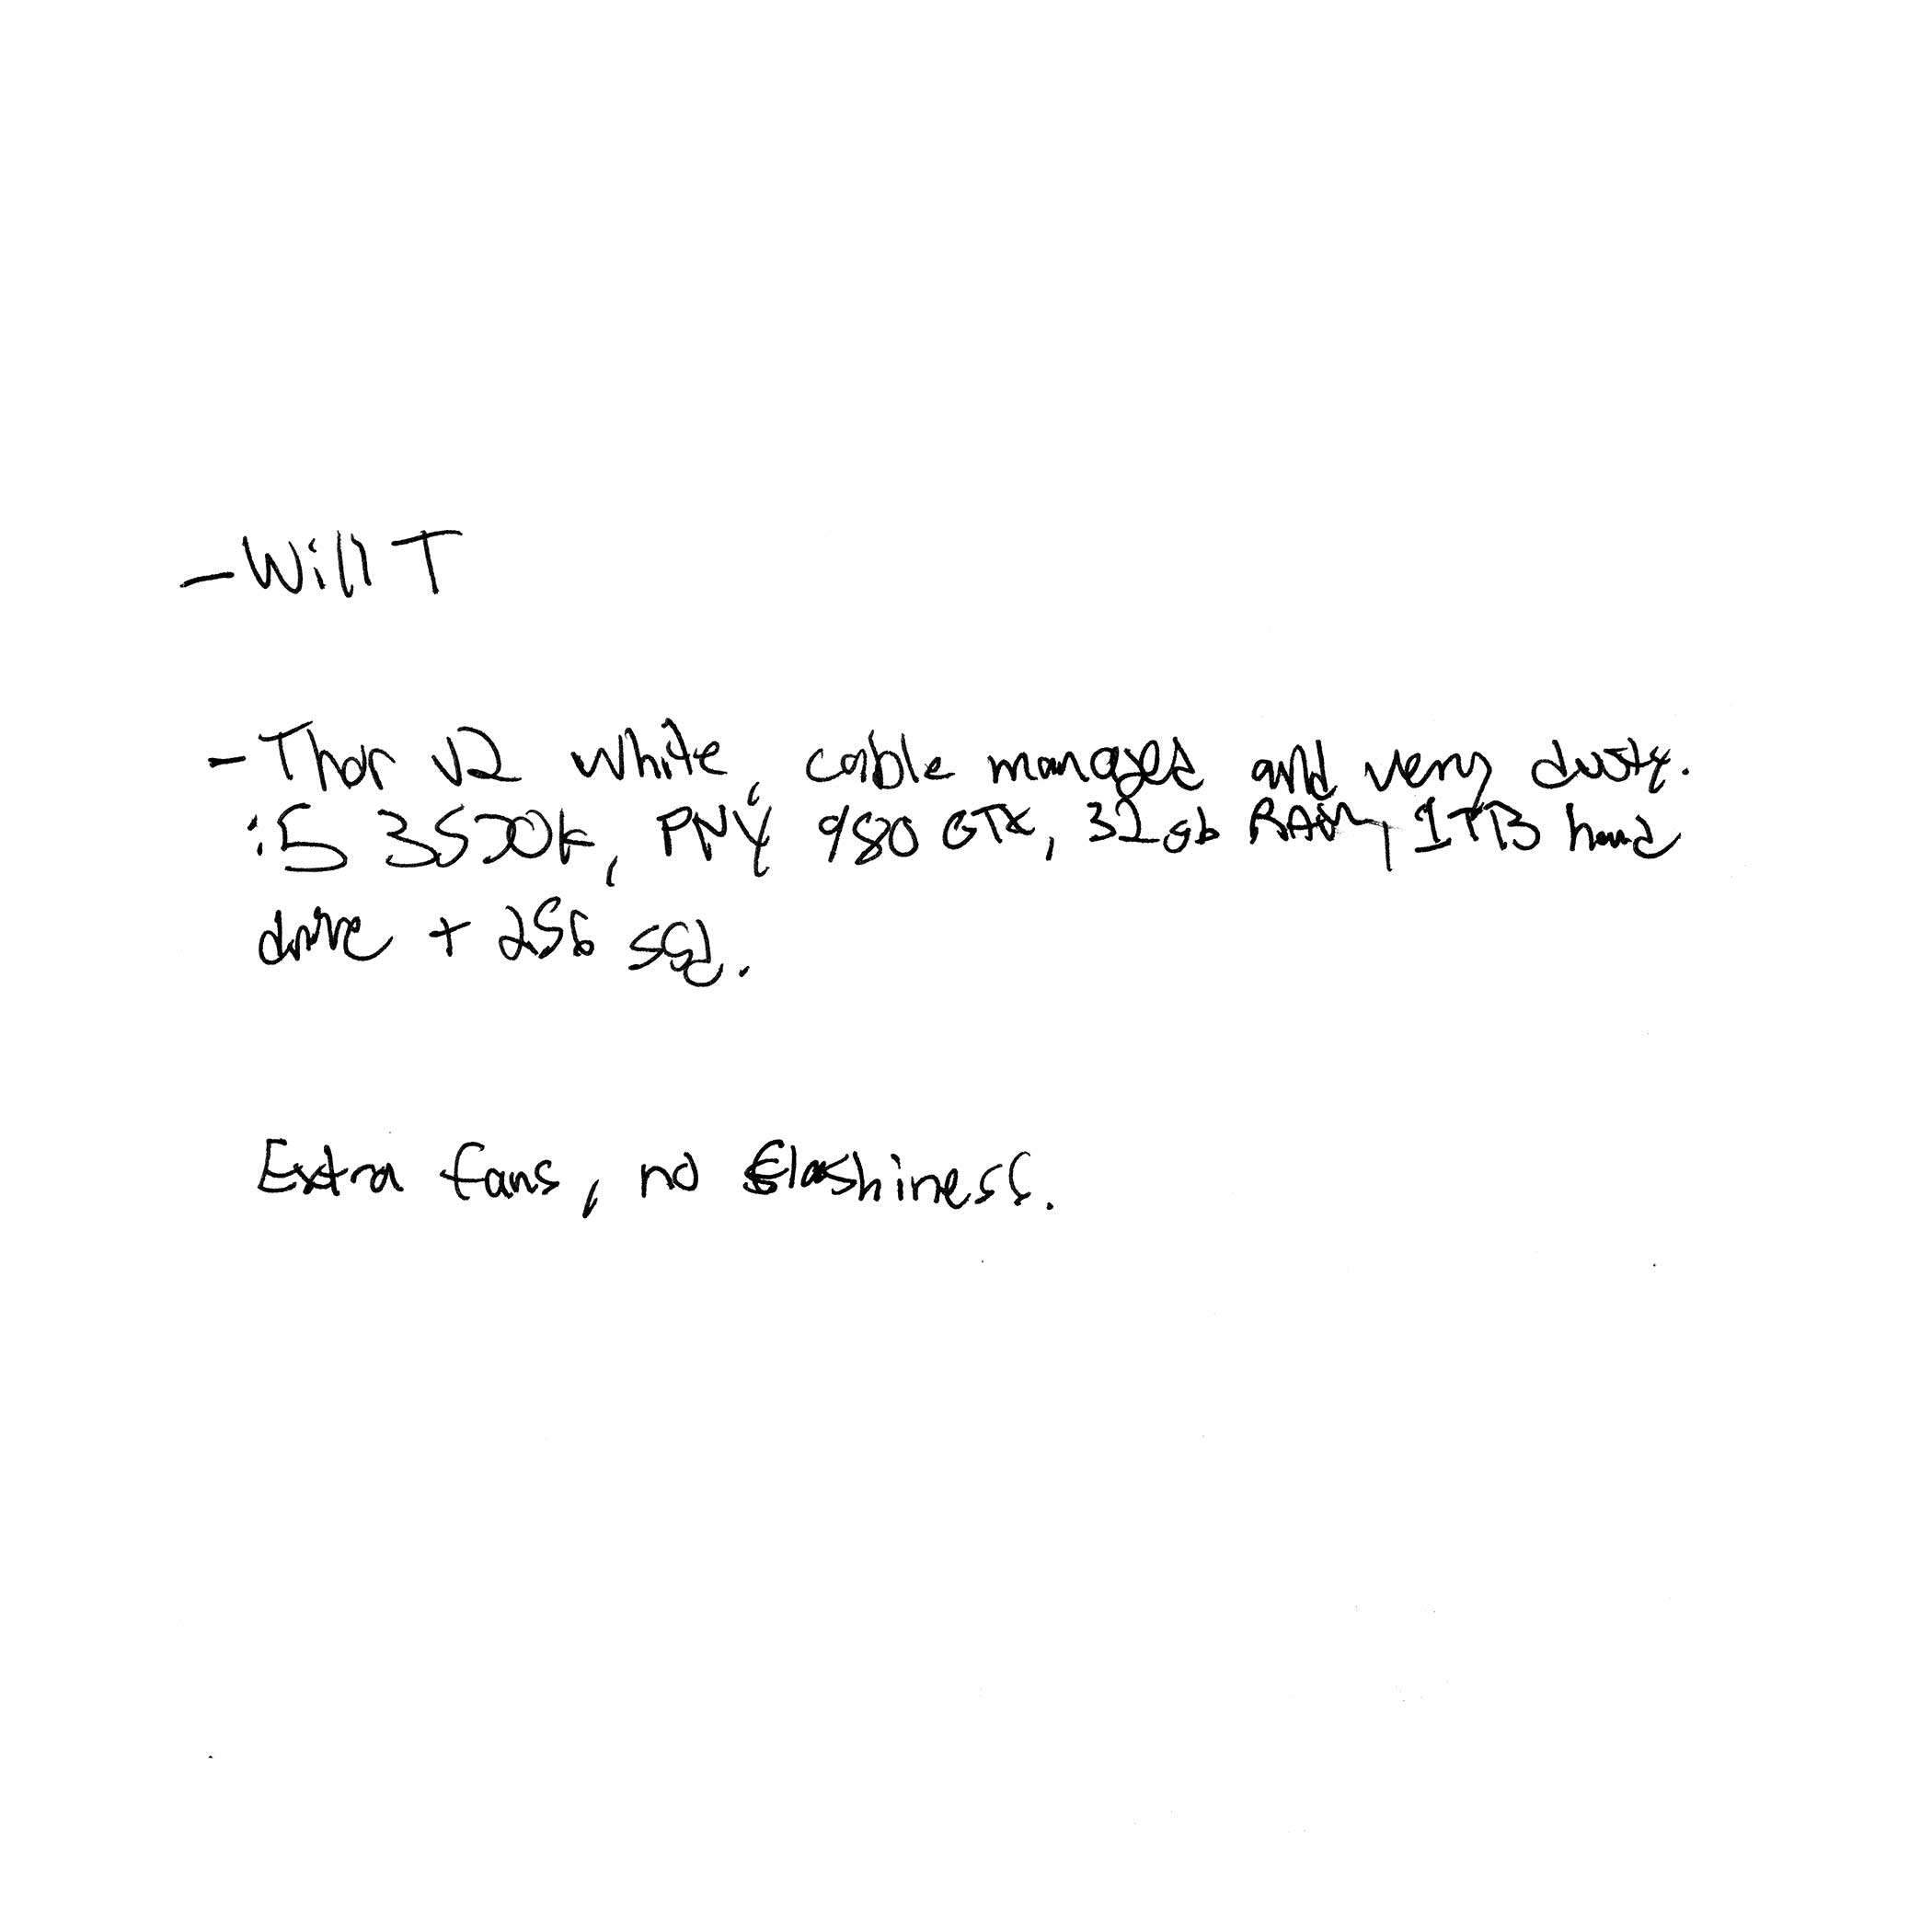 - Will T
- Thor V2 white, cable managed and very dusty.
i5 3570K, PNY 980 GTX, 32gb RAM, 1TB hard
drive + 256 SSd.
Extra fans, no flashiness.